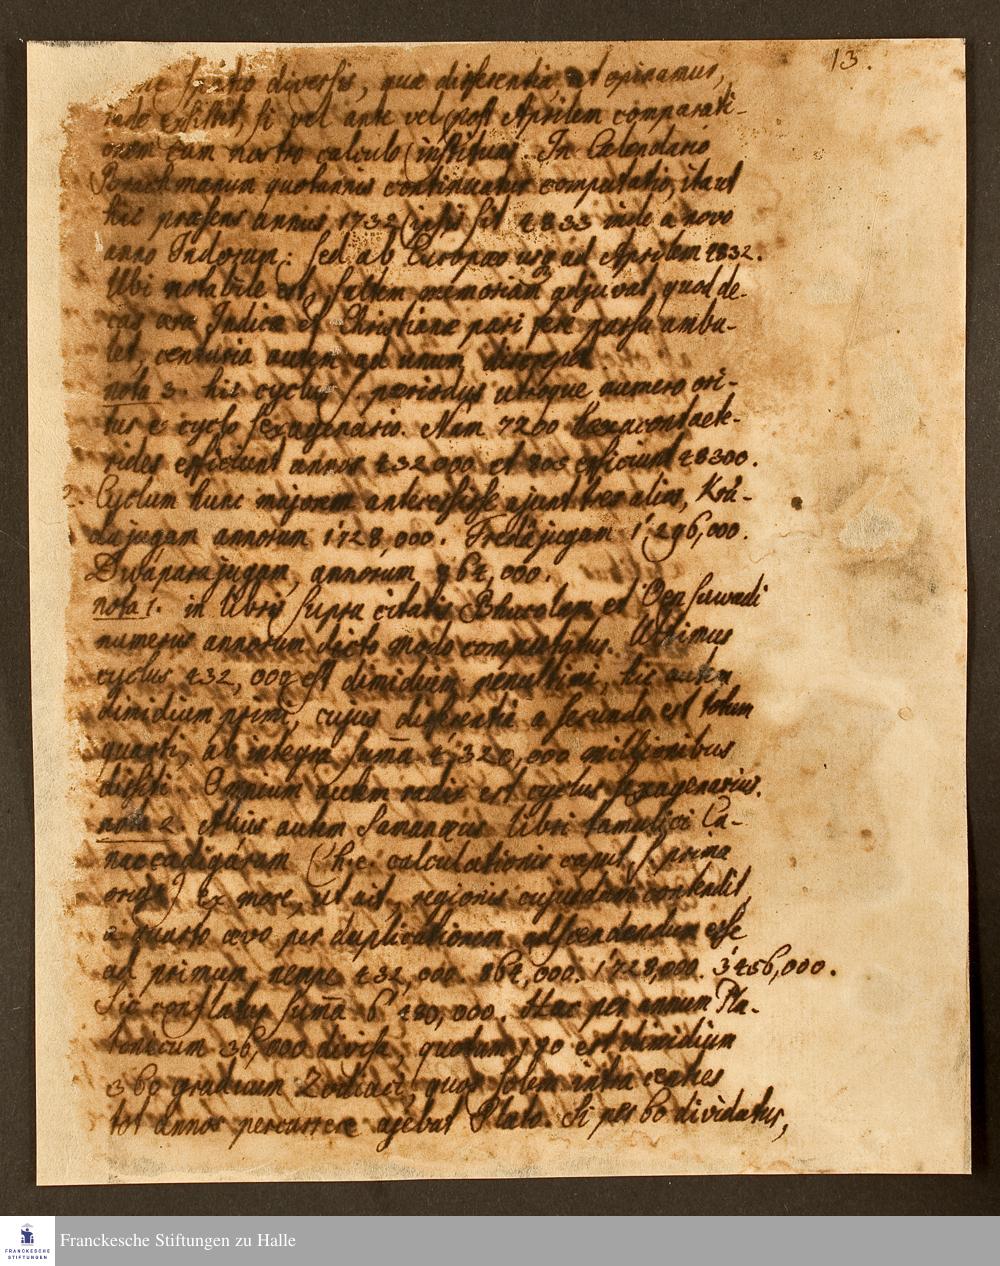 13.
spatio diversis, quæ differentia, ut opinamur,
existit, si vel ante vel post Aprilem comparati-
onem cum nostro calculo instituas. In Calendario
Brachmanum quotannis continuatur computatio, itaut
hic præsens annus 1732 ipsis sit 4833 inde a novo
anno Indorum: sed ab Europæo usq ad Aprilem 4832.
Ubi notabile est, saltem memoriam adjuvat, quod de-
cas æra Indicæ et Christianæ pari fere passu ambu-
let, centuria autem ad unum discrepet
nota 3. hic cyclus s. periodus utroque numero ori-
tur e cyclo sexagenario. Nam 7200 hexacontaete-
rides efficiunt annos 432000 et 805 efficiunt 48300.
Cyclum hunc majorem antecessisse ajunt tres alios, Krä-
dajugam annorum 1'728,000. Tredäjugam 1',296,000.
Dwäparajugam, annorum 864,000.
nota 1. in libris supra citatis et
numerus annorum dicto modo computatus. Ultimus
cyclus 432,000 est dimidium penultimi, hic autem
dimidium primi, cujus differentia a secundo est totum
quarti, ab integra suma 4'320,000 millionibus
dissiti. Omnium autem radix est cyclus sexagenarius.
nota 2. Alius autem Samanæus libri tamulici Ca-
nacadigäram (h.e. calculationis caput, s. prima
origo) ex more, ut ait, regionis cujusdam contendit,
a quarto ævo per duplicationem adscendendum esse
ad primum, nempe 432,000. 864,000. 1'728,000. 3'456,000.
Sic conflatur suma 6'480,000. Hac per annum Pla-
tonicum 36,000 divisa, quotum 180 est dimidium
360 graduum Zodiaci, quos solem intra centies
tot annos percurrere ajebat Plato. Si per 60 dividatur,
Franckesche Stiftungen zu Halle
FRANCKESCHE
STIFTUNGEN